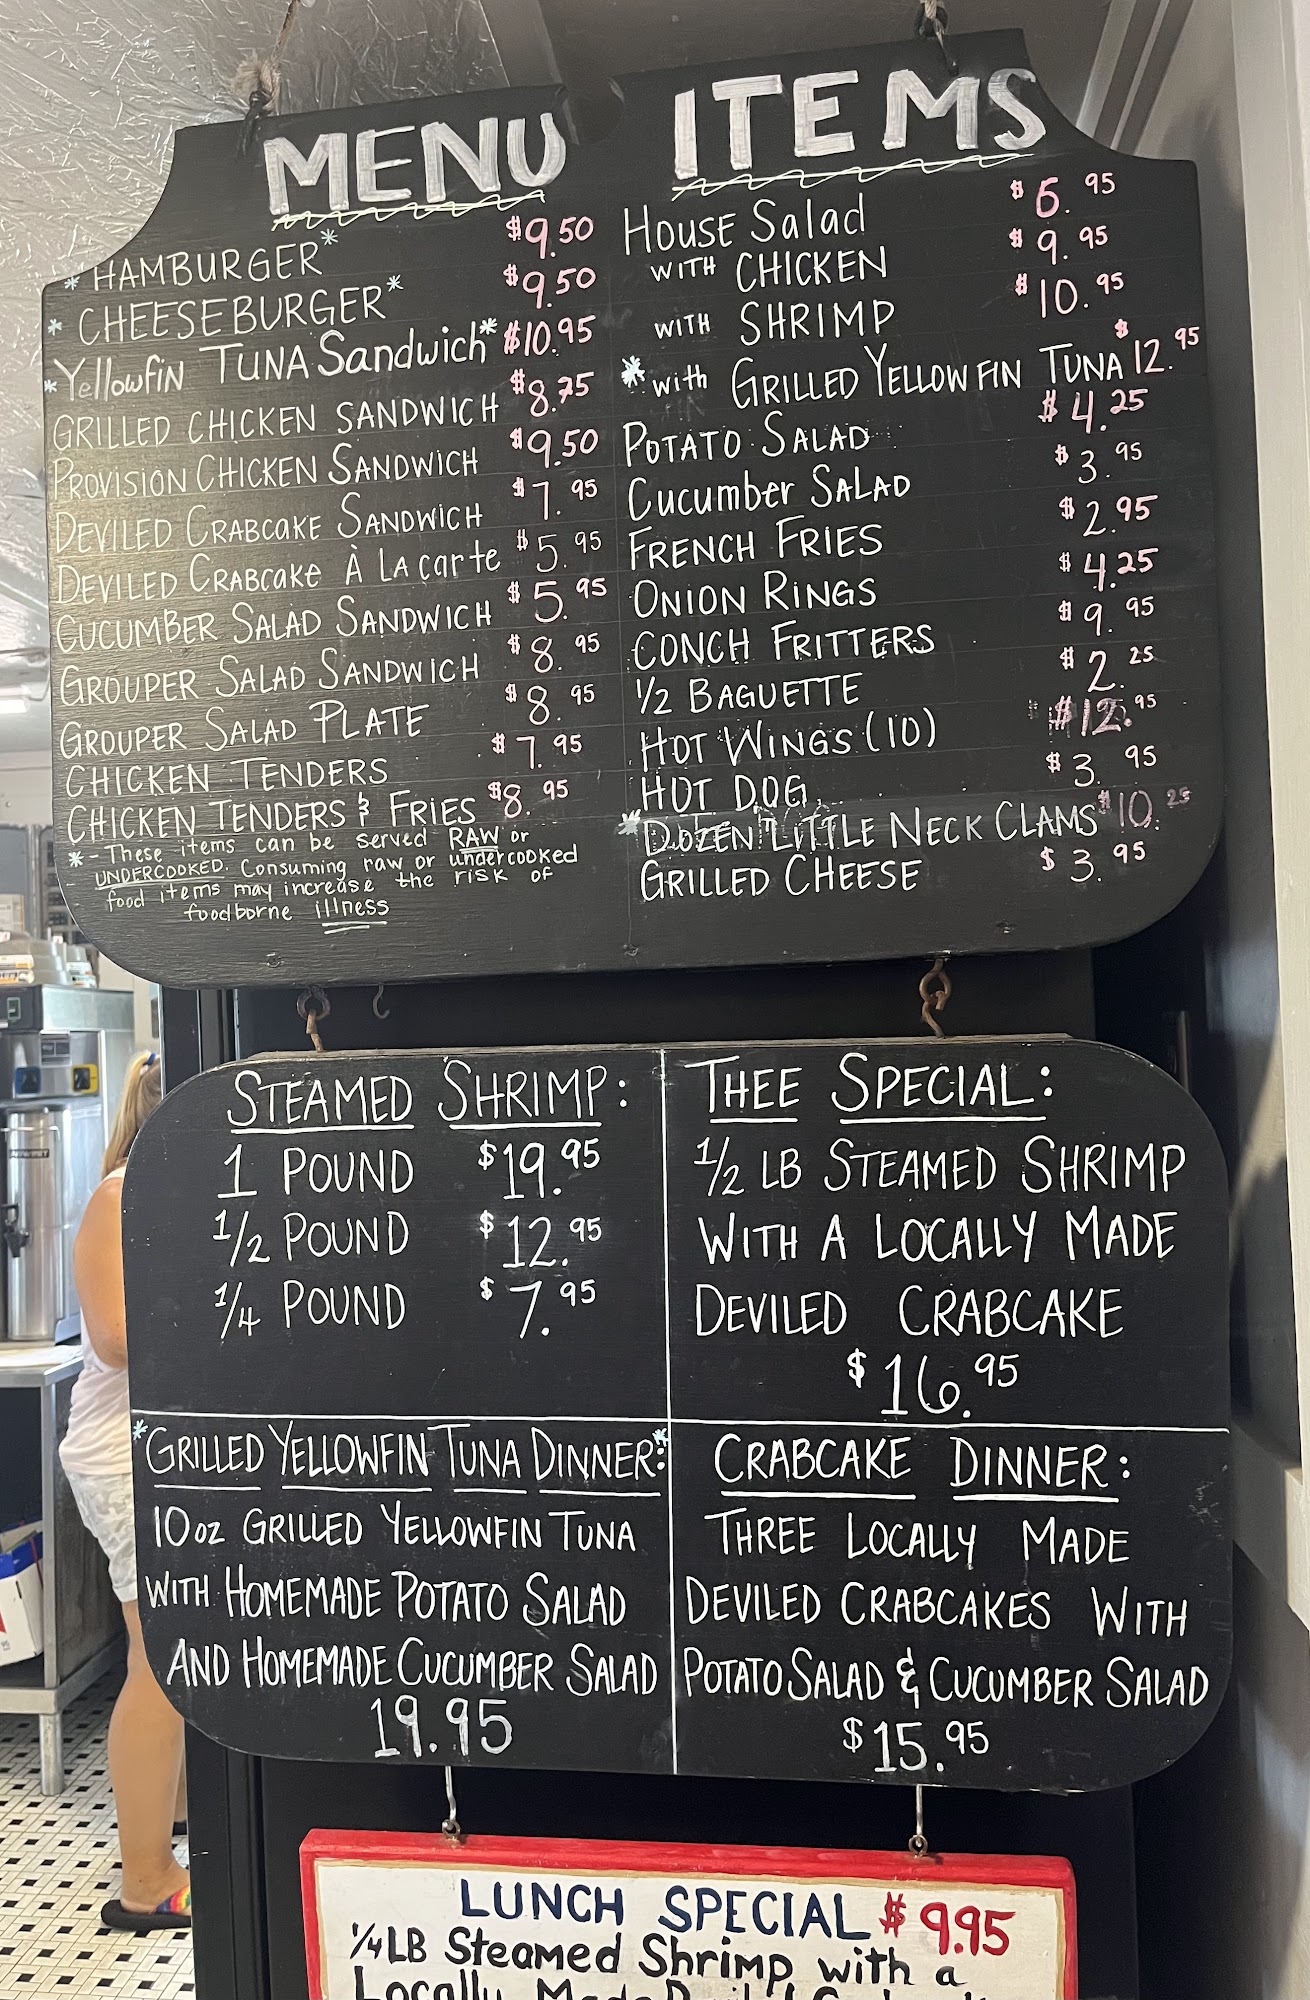 MENU ITEMS
* HAMBURGER* $9.50
* CHEESEBURGER* $9.50
*Yellowfin TUNA Sandwich* $10.95
GRILLED CHICKEN SANDWICH $8.75
PROVISION CHICKEN SANDWICH $9.50
DEVILED CRABCAKE SANDWICH $7.95
DEVILED CRABCAKE À LA carte $5.95
CUCUMBER SALAD SANDWICH $5.95
GROUPER SALAD SANDWICH $8.95
GROUPER SALAD PLATE $8.95
CHICKEN TENDERS $7.95
CHICKEN TENDERS & FRIES $8.95
* - These items can be served RAW or
UNDERCOOKED. Consuming raw or undercooked
food items may increase the risk of
foodborne illness
House Salad $6.95
WITH CHICKEN $9.95
WITH SHRIMP $10.95
*with GRILLED YELLOWFIN TUNA $12.95
POTATO SALAD $4.25
Cucumber SALAD $3.95
FRENCH FRIES $2.95
ONION RINGS $4.25
CONCH FRITTERS $9.95
1/2 BAGUETTE $2.25
HOT WINGS (10) $12.95
HOT DOG $3.95
*DOZEN LITTLE NECK CLAMS $10.25
GRILLED CHEESE $3.95
STEAMED SHRIMP:
1 POUND $19.95
1/2 POUND $12.95
1/4 POUND $7.95
THEE SPECIAL:
1/2 LB STEAMED SHRIMP
WITH A LOCALLY MADE
DEVILED CRABCAKE
$16.95
*GRILLED YELLOWFIN TUNA DINNER:*
10oz GRILLED YELLOWFIN TUNA
WITH HOMEMADE POTATO SALAD
AND HOMEMADE CUCUMBER SALAD
19.95
CRABCAKE DINNER:
THREE LOCALLY MADE
DEVILED CRABCAKES WITH
POTATO SALAD & CUCUMBER SALAD
$15.95
LUNCH SPECIAL $9.95
1/4 LB Steamed Shrimp with a
Locally Made